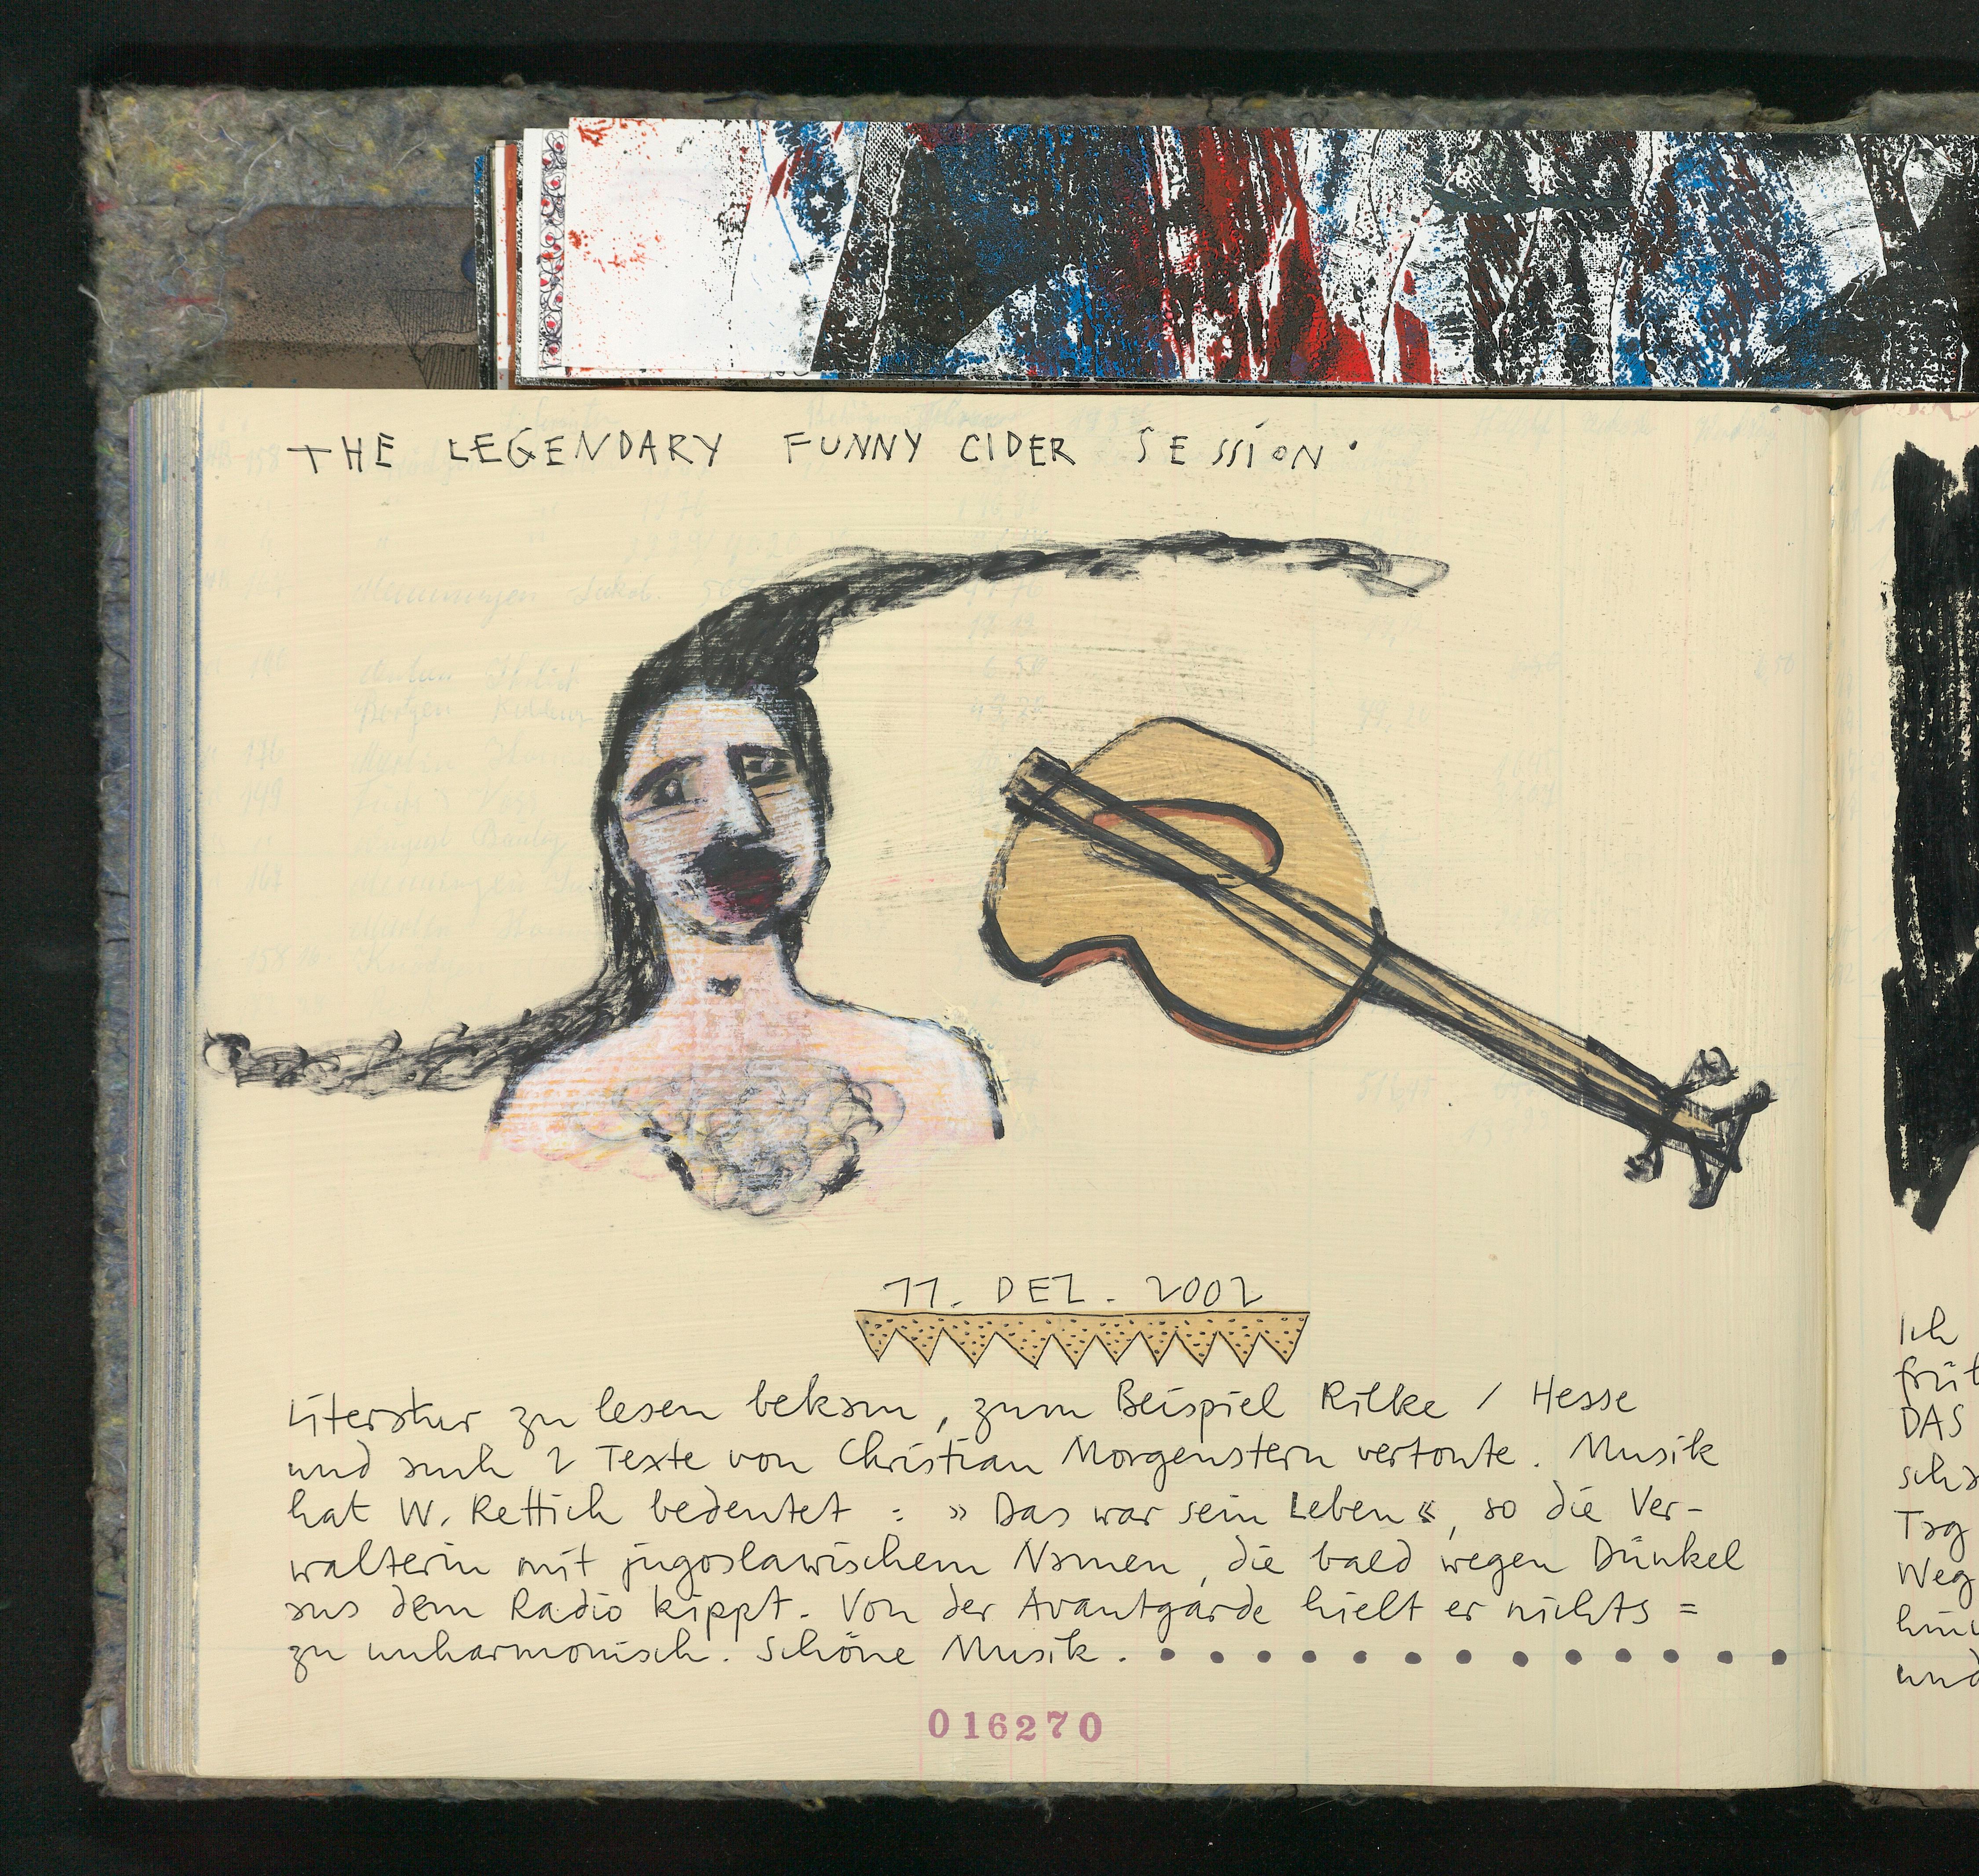 THE LEGENDARY FUNNY CIDER SESSION.
11. DEZ. 2002
Literatur zu lesen bekam, zum Beispiel Rilke / Hesse
und auch 2 Texte von Christian Morgenstern vertonte. Musik
hat W. Rettich bedeutet : » Das war sein Leben «, so die Ver-
walterin mit jugoslawischem Namen, die bald wegen Dünkel
aus dem Radio kippt. Von der Avantgarde hielt er nichts =
zu unharmonisch. Schöne Musik. . . . . . . . . . . . . .
016270
Ich
DAS
Tag
Weg
und